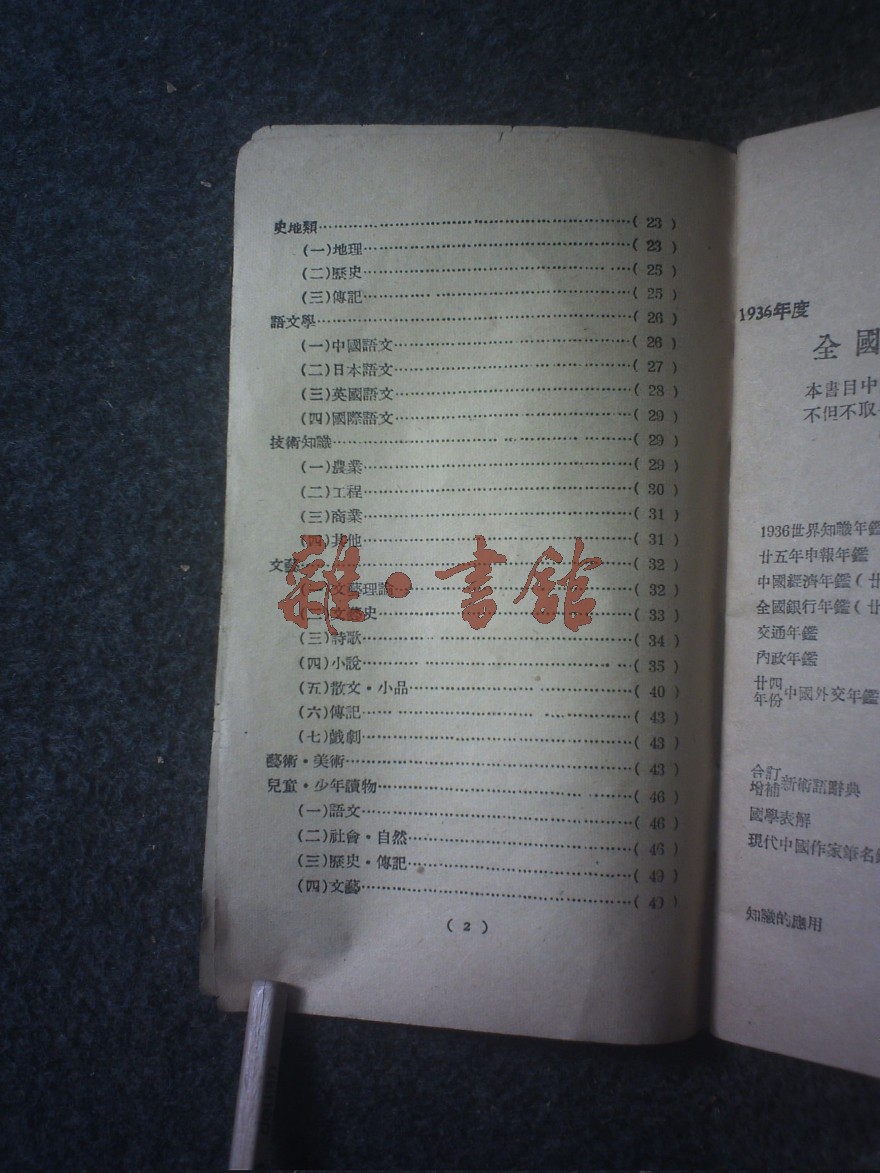 史地類………………………………( 23 )
(一)地理………………………………( 23 )
(二)歷史………………………………( 25 )
(三)傳記………………………………( 25 )
語文學………………………………( 26 )
(一)中國語文………………………………( 26 )
(二)日本語文………………………………( 27 )
(三)英國語文………………………………( 28 )
(四)國際語文………………………………( 29 )
技術知識………………………………( 29 )
(一)農業………………………………( 29 )
(二)工程………………………………( 30 )
(三)商業………………………………( 31 )
(四)其他………………………………( 31 )
文藝………………………………( 32 )
(一)文藝理論………………………………( 32 )
(二)文藝史………………………………( 33 )
(三)詩歌………………………………( 34 )
(四)小說………………………………( 35 )
(五)散文·小品………………………………( 40 )
(六)傳記………………………………( 43 )
(七)戲劇………………………………( 43 )
藝術·美術………………………………( 43 )
兒童·少年讀物………………………………( 46 )
(一)語文………………………………( 46 )
(二)社會·自然………………………………( 46 )
(三)歷史·傳記………………………………( 49 )
(四)文藝………………………………( 49 )
( 2 )
雜·書館
1936年度
全國
本書目中
不但不取
1936世界知識年鑑
廿五年申報年鑑
中國經濟年鑑(廿
全國銀行年鑑(廿
交通年鑑
內政年鑑
廿四年份中國外交年鑑
合訂增補新術語辭典
國學表解
現代中國作家筆名錄
知識的應用